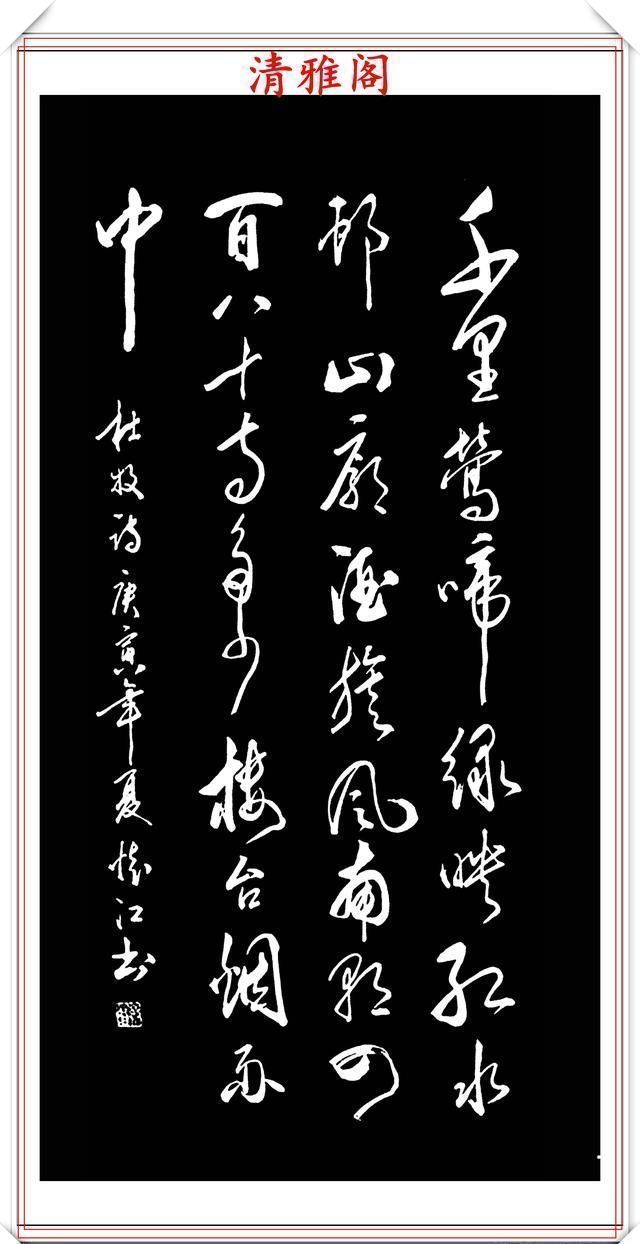 清雅阁
千里鶯啼绿映红水
邨山廓酒旗风南朝四
百八十寺多少楼台烟雨
中
杜牧诗庚寅年夏怀江书